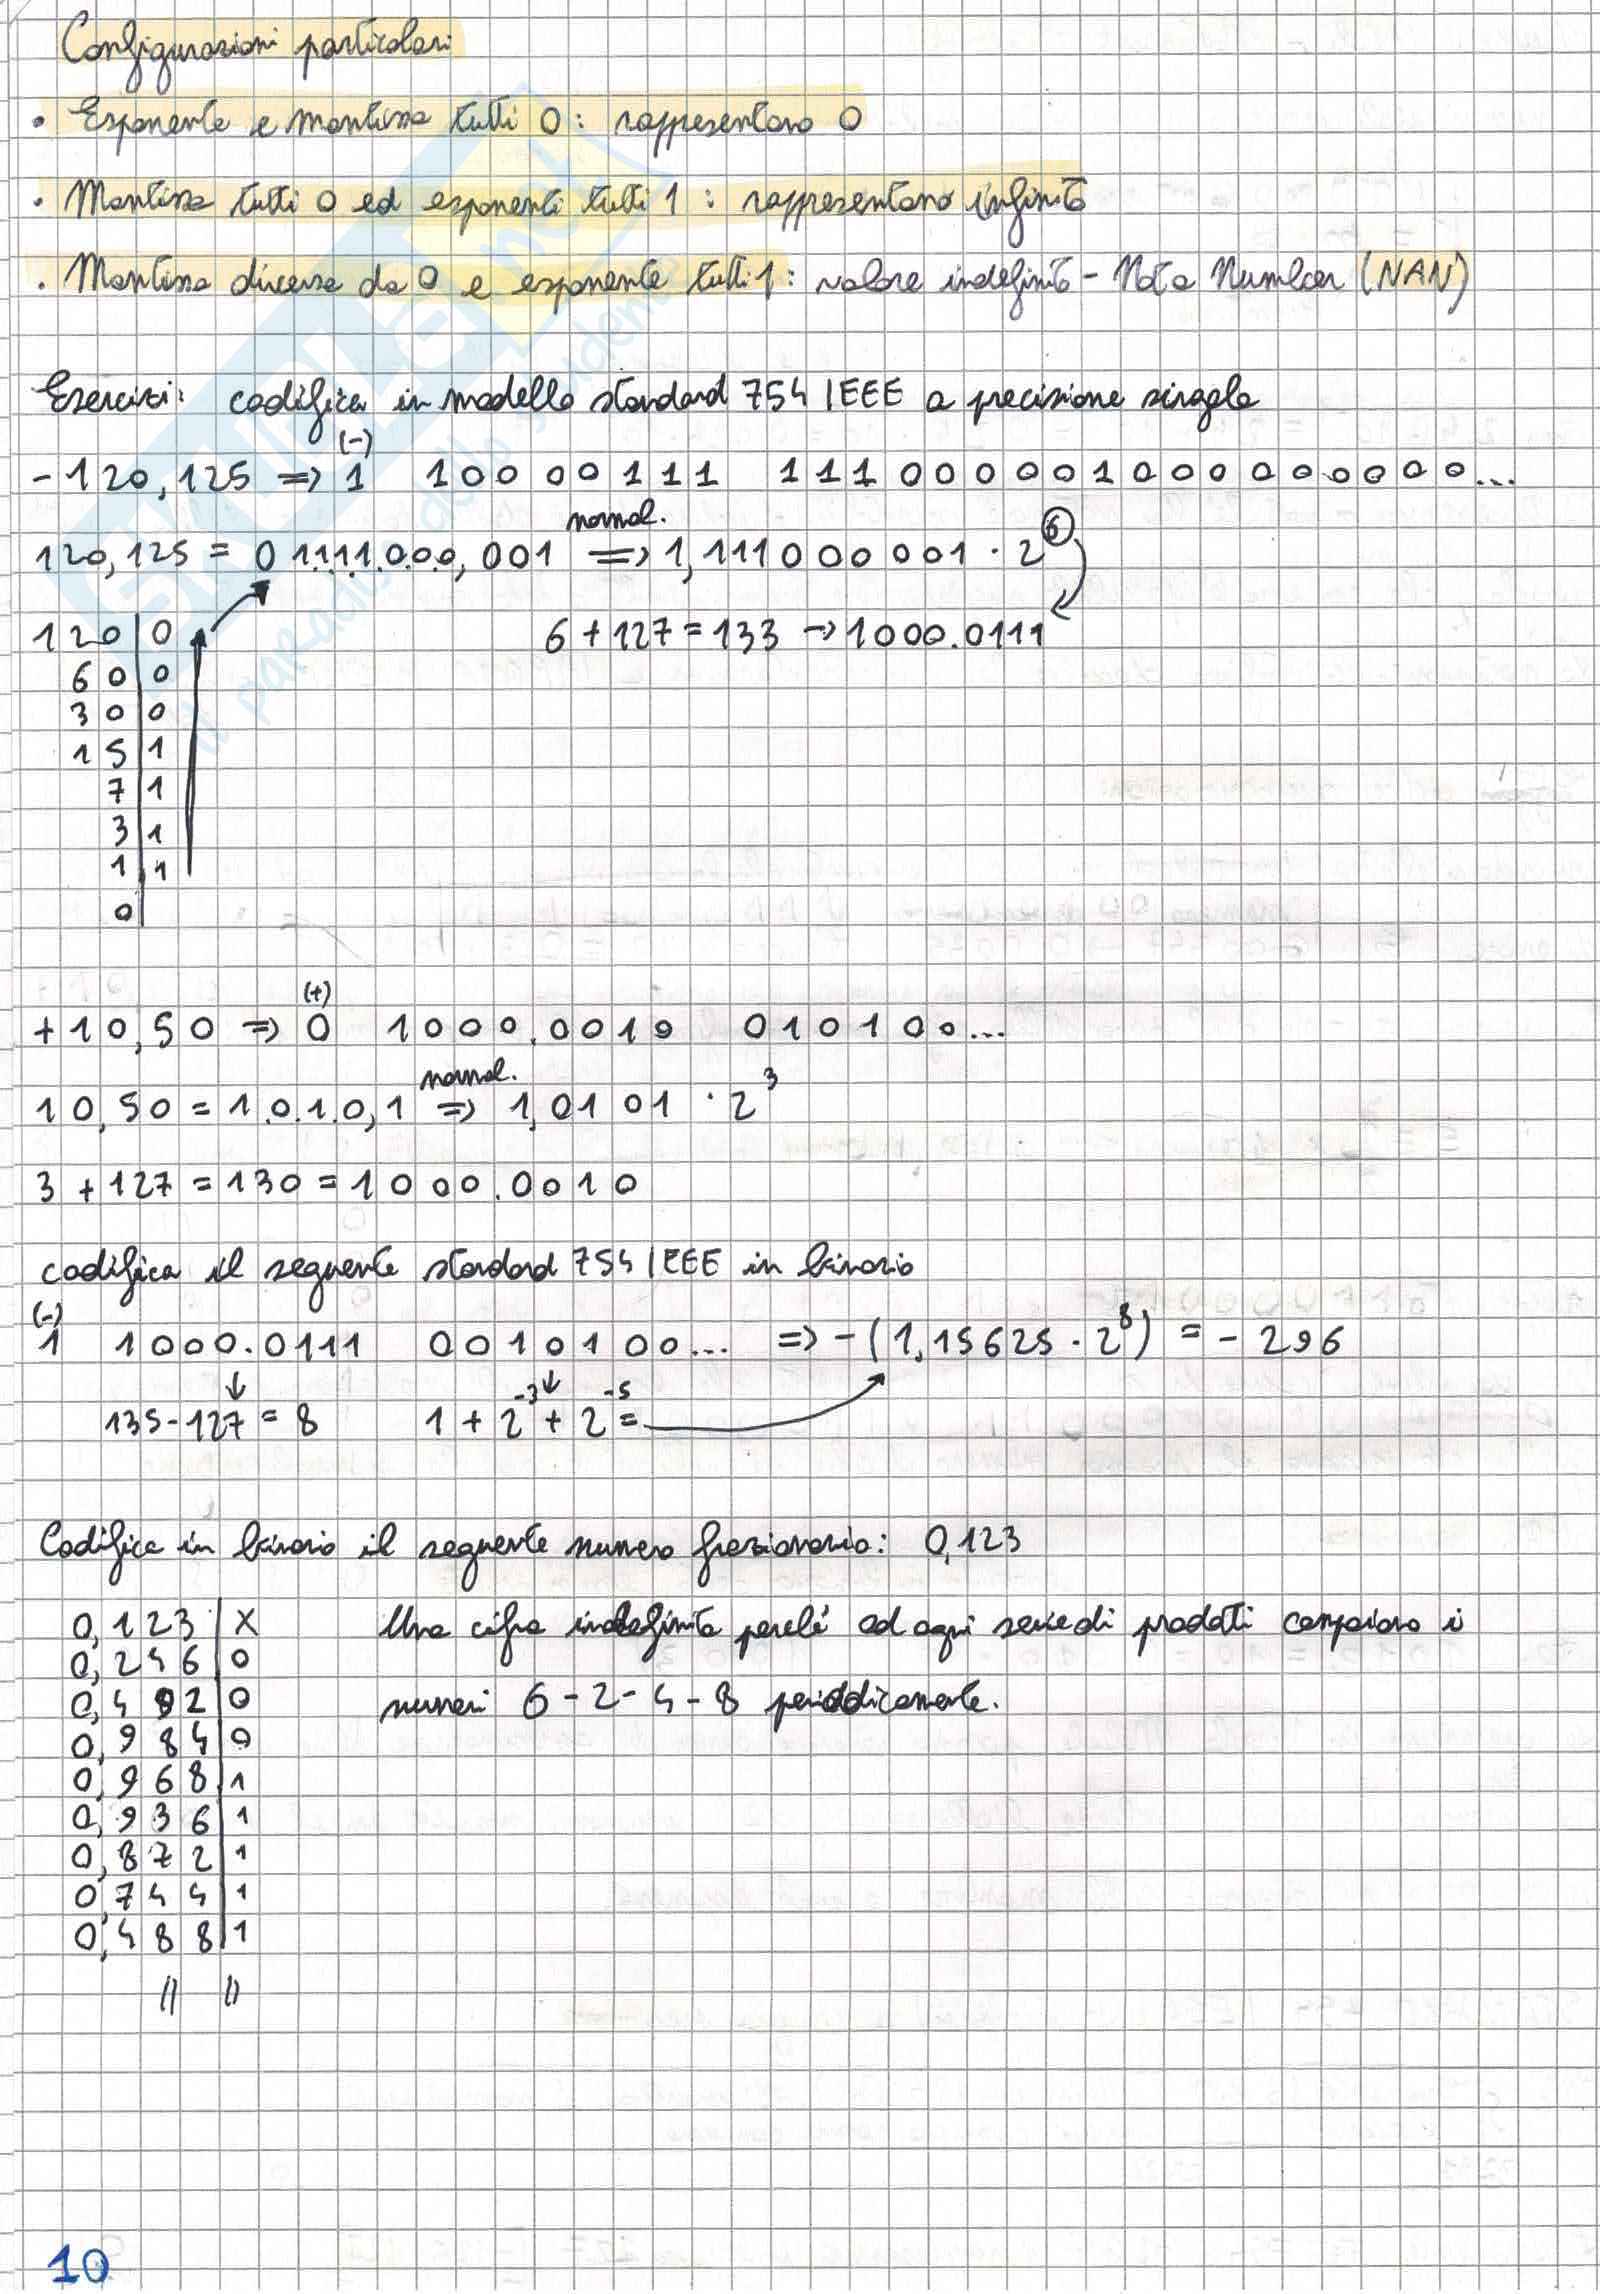 Configurazioni particolari
• Esponente e mantissa tutti 0: rappresentano 0
• Mantissa tutti 0 ed esponenti tutti 1: rappresentano infinito
• Mantissa diversa da 0 e esponente tutti 1: valore indefinito - Not a Number (NAN)
Esercizi: codifica in modello standard 754 IEEE a precisione singola
(-)
-120,125 => 1 10000111 1110000001000000000...
normal.
120,125 = 01111.000,001 => 1,111000001 · 2^6
120 | 0 6 + 127 = 133 -> 1000.0111
60 | 0
30 | 0
15 | 1
7 | 1
3 | 1
1 | 1
0 |
(+)
+10,50 => 0 1000.0010 010100...
normal.
10,50 = 1.0.1.0,1 => 1,0101 · 2^3
3 + 127 = 130 = 1000.0010
codifica il seguente standard 754 IEEE in binario
(-)
1 1000.0111 0010100... => -(1,15625 · 2^8) = -296
135-127 = 8 1 + 2^-3 + 2^-5 =
Codifica in binario il seguente numero frazionario: 0,123
0,123 | X Una cifra indefinita perché ad ogni serie di prodotti compaiono i
0,246 | 0
0,492 | 0 numeri 6-2-4-8 periodicamente.
0,984 | 0
0,968 | 1
0,936 | 1
0,872 | 1
0,744 | 1
0,488 | 1
// //
10
SKUOLA.net
il paradiso dello studente